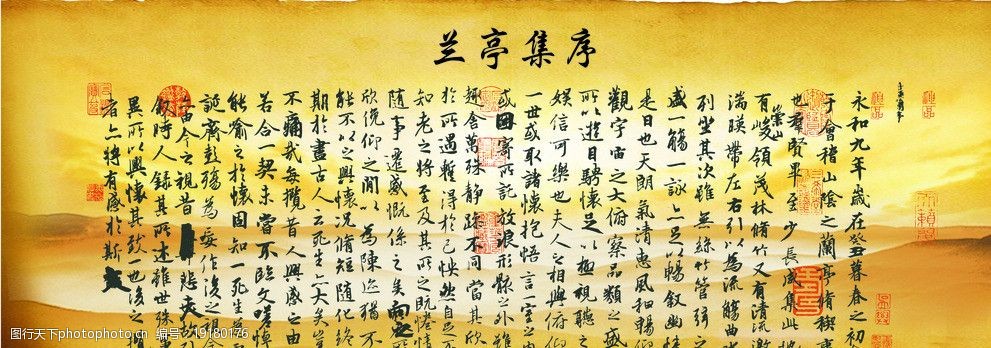 兰亭集序
永和九年歲在癸丑暮春之初
于會稽山陰之蘭亭脩禊事
也羣賢畢至少長咸集此地
有崇山峻領茂林脩竹又有清流激
湍暎帶左右引以為流觴曲水
列坐其次雖無絲竹管弦之
盛一觴一詠亦足以暢敘幽情
是日也天朗氣清惠風和暢仰
觀宇宙之大俯察品類之盛
所以遊目騁懷足以極視聽
娛信可樂也夫人之相與俯仰
一世或取諸懷抱悟言一室之
或因寄所託放浪形骸之外雖
趣舍萬殊靜躁不同當其欣
於所遇蹔得於己怏然自足不
知老之將至及其所之既惓情
隨事遷感慨係之矣向之
欣俛仰之閒以為陳跡猶不
能不以之興懷況脩短隨化終
期於盡古人云死生亦大矣豈
不痛哉每攬昔人興感之由
若合一契未嘗不臨文嗟悼
能喻之於懷固知一死生
誕齊彭殤為妄作後之視今
亦由今之視昔悲夫故
敘時人錄其所述雖世殊事
異所以興懷其致一也後之
者亦將有感於斯文
图行天下photophoto.cn 编号：19180176